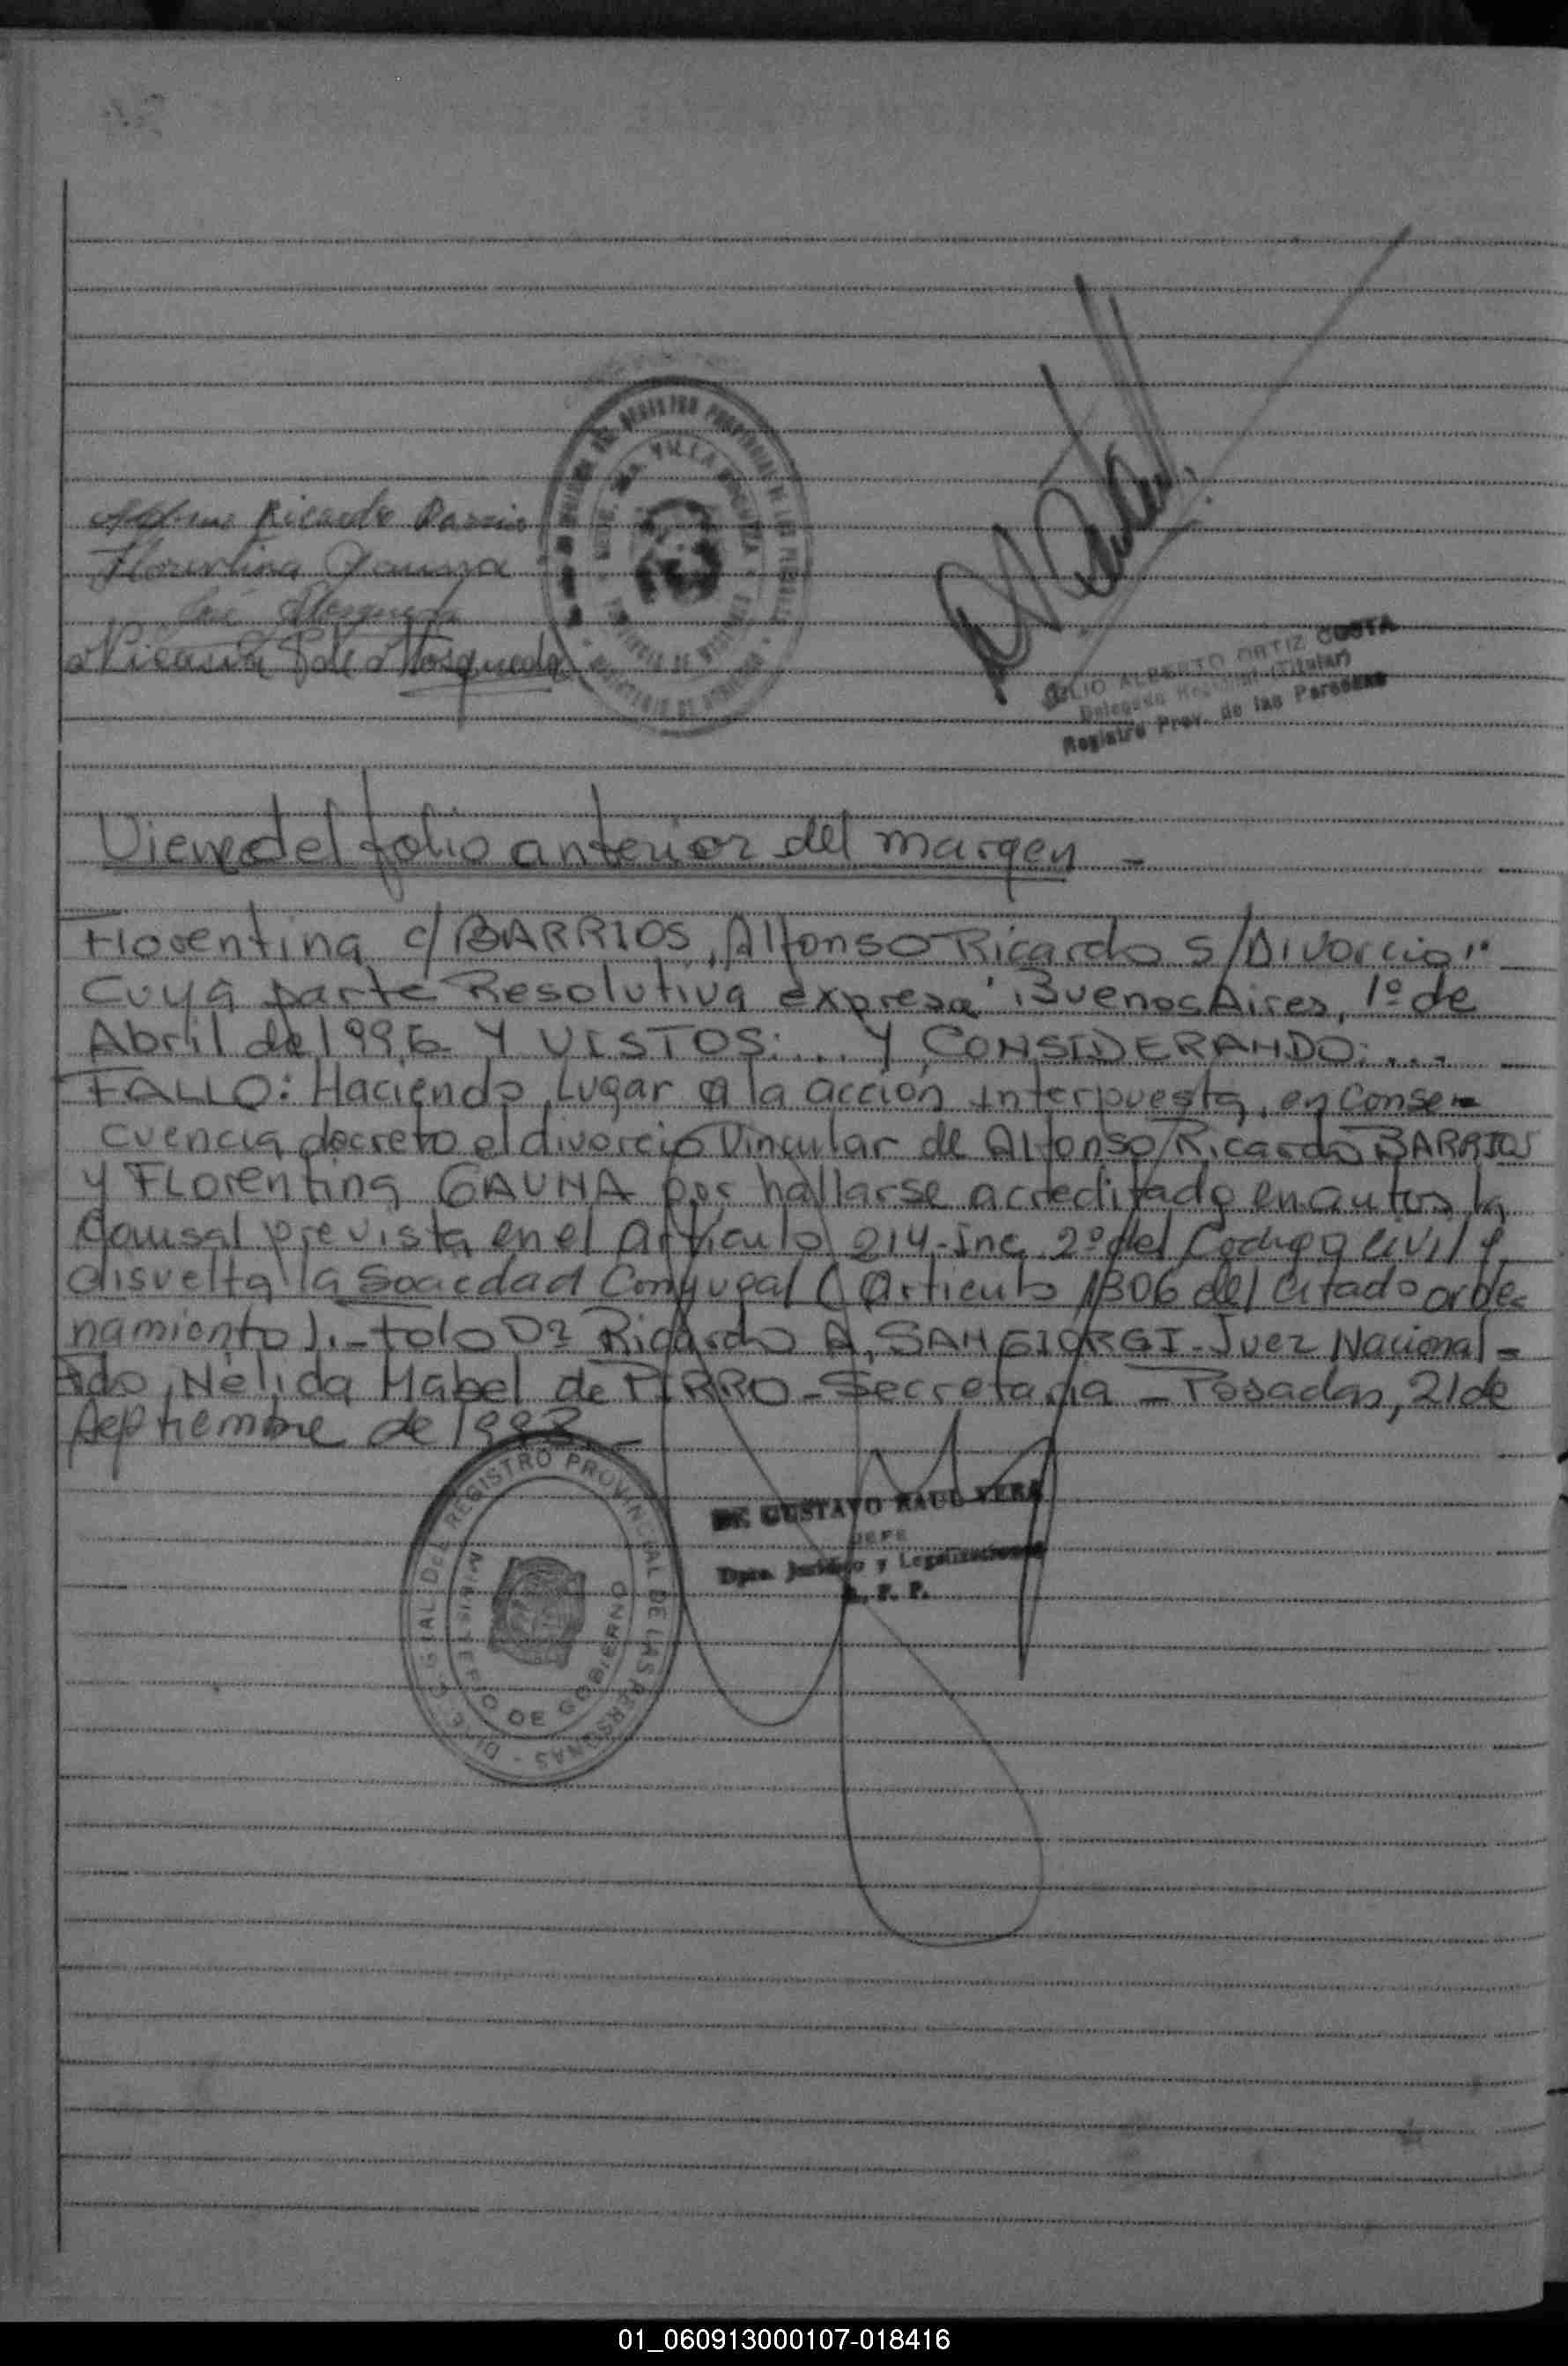 Alfonso Ricardo Barrios
Florentina Gauna
José Mosqueda
Nicasia P. de Mosqueda
JULIO ALBERTO ORTIZ COSTA
Delegado Regional (Titular)
Registro Prov. de las Personas
Viene del folio anterior del margen -
Florentina c/ BARRIOS, Alfonso Ricardo s/ Divorcio"
Cuya parte Resolutiva expresa "Buenos Aires, 1º de
Abril de 1996 Y VISTOS: ... Y CONSIDERANDO: ...
FALLO: Haciendo Lugar a la acción interpuesta, en Conse-
cuencia decreto el divorcio Vincular de Alfonso Ricardo BARRIOS
y FLorentina GAUNA por hallarse acreditado en autos la
Causal prevista en el Artículo 214-Inc 2º del Codigo Civil y
disuelta la Sociedad Conyugal (Artículo 1306 del citado orde-
namiento).- Fdo Dr Ricardo A, SANGIORGI - Juez Nacional -
Fdo, Nélida Mabel de PIRRO - Secretaria - Posadas, 21 de
Septiembre de 1998 -
DIREC. GRAL. DEL REGISTRO PROVINCIAL DE LAS PERSONAS
MINISTERIO DE GOBIERNO
GUSTAVO RAUL VERA
JEFE
Dpto. Jurídico y Legalizaciones
01_060913000107-018416